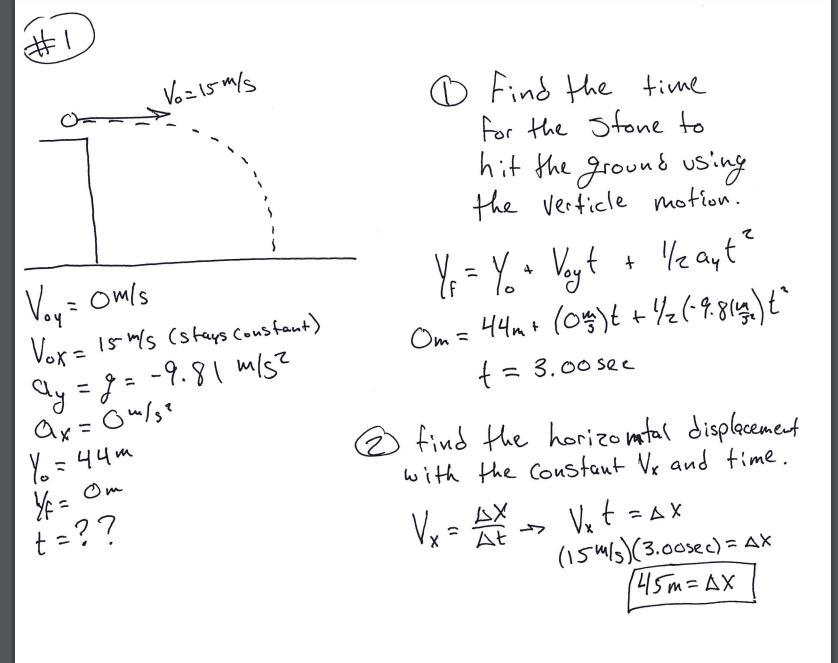 #1
V₀=15 m/s
V₀y = 0 m/s
V₀x = 15 m/s (stays constant)
ay = g = -9.81 m/s²
ax = 0 m/s²
Y₀ = 44 m
Yf = 0 m
t = ??
① Find the time
for the stone to
hit the ground using
the verticle motion.
Yf = Y₀ + V₀yt + 1/2 ayt²
0m = 44m + (0 m/s)t + 1/2(-9.81 m/s²)t²
t = 3.00 sec
② find the horizontal displacement
with the constant Vx and time.
Vx = ΔX/Δt → Vx t = ΔX
(15 m/s)(3.00sec) = ΔX
45m = ΔX